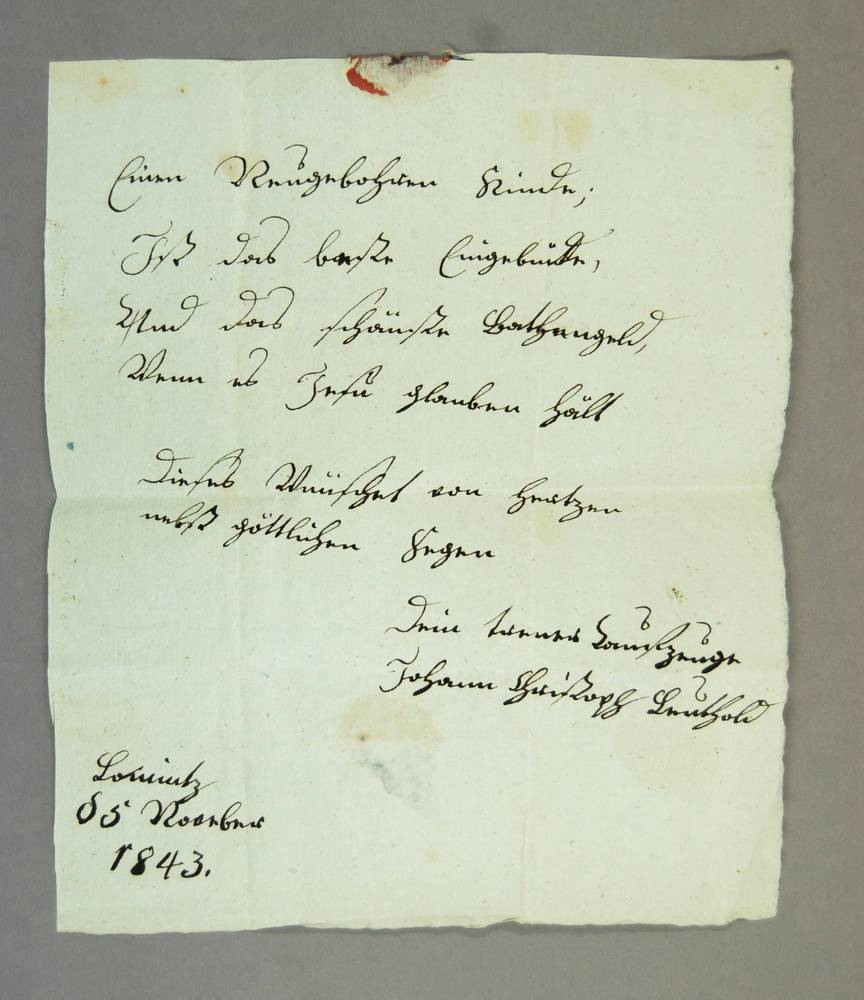 Einen Neugebohren Kinde;
Ist das beste Eingebinde,
Und das schönste Bathengeld,
Wenn es Jesu glauben hält
Dieses Wünschet von Hertzen
nebst göttlichen Segen
Dein treuer Taufzeuge
Johann Christoph Leuthold
Lomnitz
d 5 November
1843.